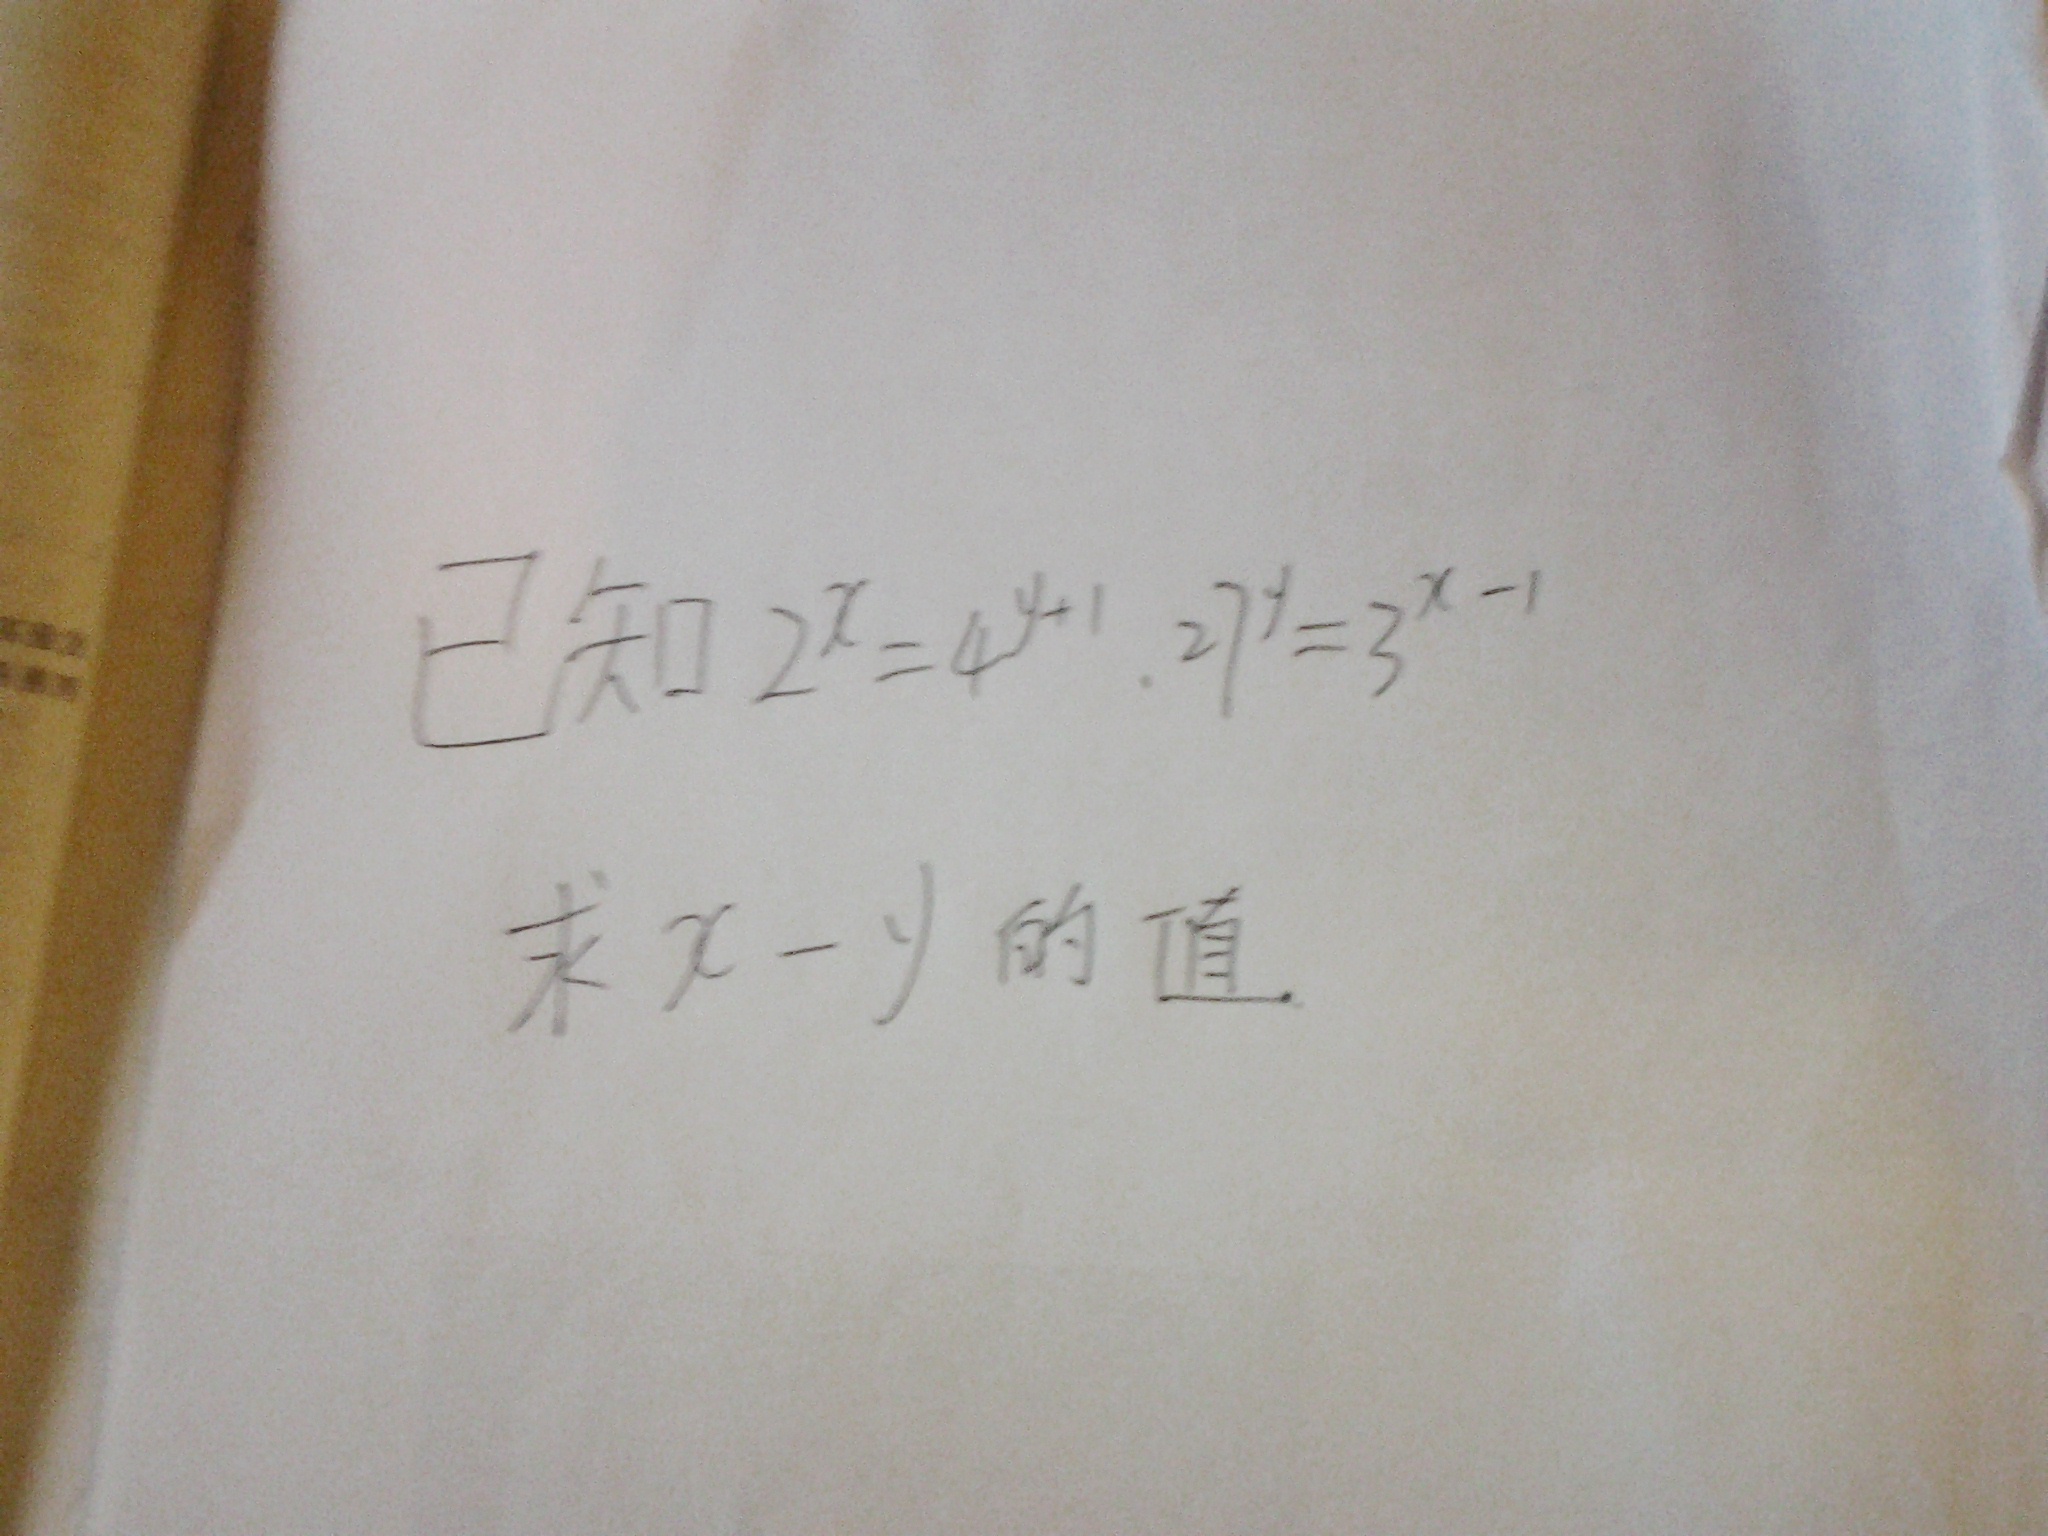 已知 2^x=4^{y+1}.27^y=3^{x-1}
求 x-y 的值.